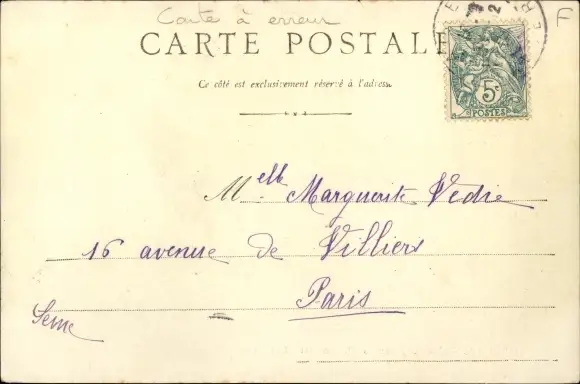 Carte à erreur F
CARTE POSTALE
Ce côté est exclusivement réservé à l'adresse
5c
POSTES
Melle Marguerite Vedie
16 avenue de Villiers
Paris
Seine